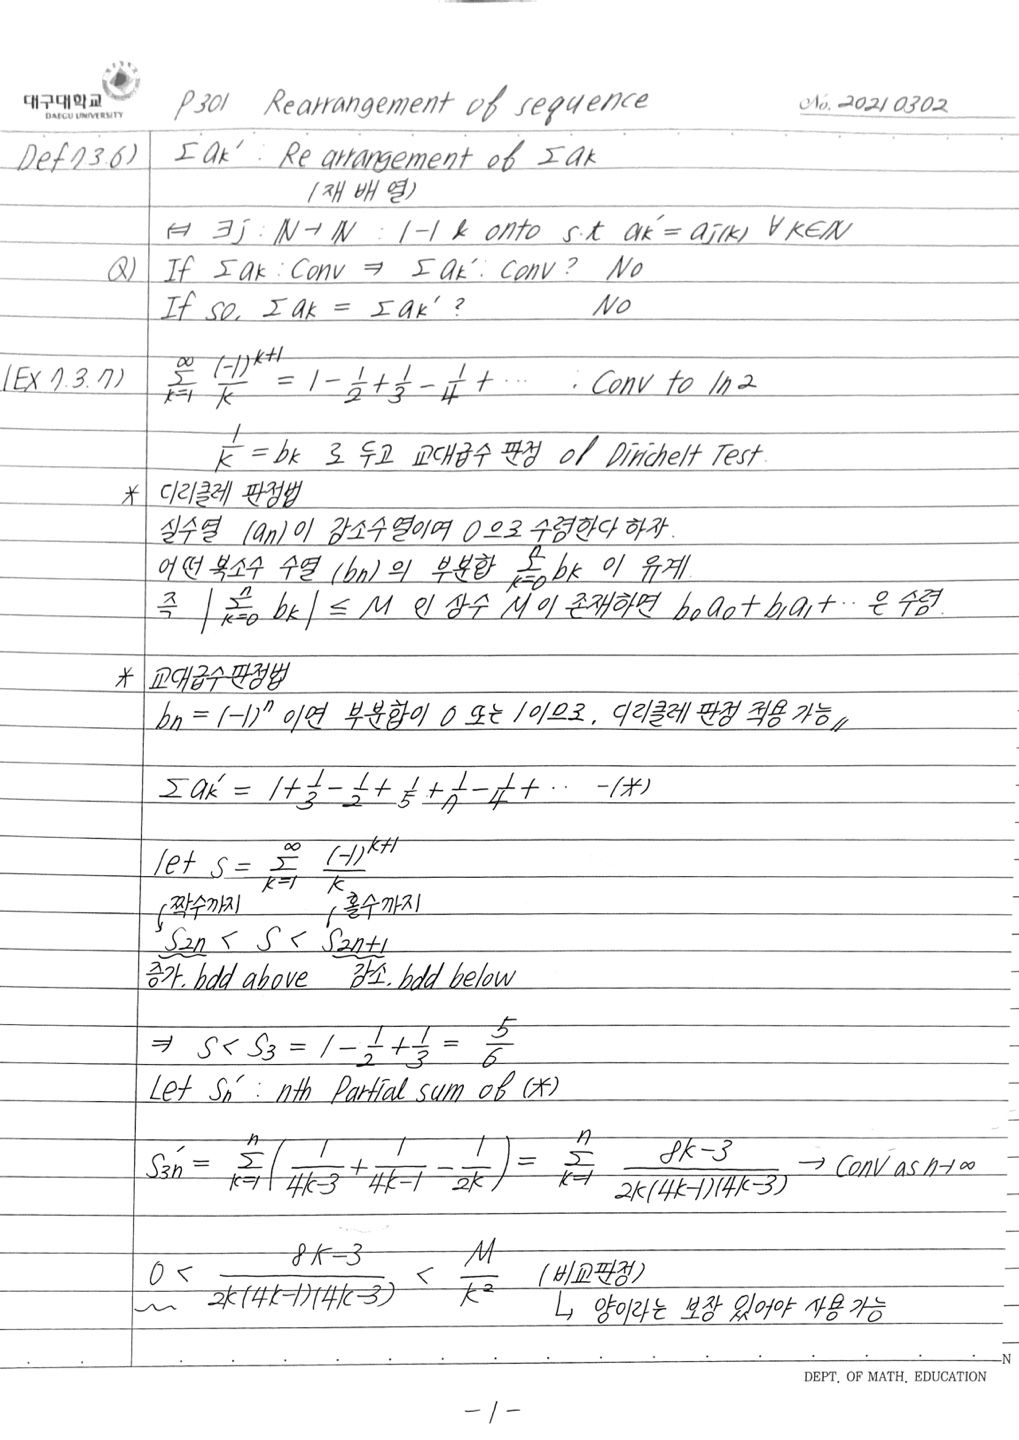 대구대학교
DAEGU UNIVERSITY
P301 Rearrangement of sequence
No. 20210302
Def 7.3.6) Σak′ : Rearrangement of Σak
(재배열)
⇔ ∃j : ℕ→ℕ : 1-1 & onto s.t ak′ = aj(k) ∀k∈ℕ
Q) If Σak : Conv ⇒ Σak′ : conv? No
If so, Σak = Σak′ ? No
(EX 7.3.7) Σ_{k=1}^{∞} (-1)^{k+1}/k = 1 - 1/2 + 1/3 - 1/4 + ⋯ : Conv to ln2
1/k = bk 로 두고 교대급수 판정 of Dirichelt Test.
* 디리클레 판정법
실수열 (an)이 감소수열이며 0으로 수렴한다 하자.
어떤 복소수 수열 (bn)의 부분합 Σ_{k=0}^{n} bk 이 유계.
즉 |Σ_{k=0}^{n} bk| ≤ M 인 상수 M이 존재하면 b0a0 + b1a1 + ⋯ 은 수렴.
* 교대급수판정법
bn = (-1)^n 이면 부분합이 0 또는 1이므로, 디리클레 판정 적용 가능 //
Σak′ = 1 + 1/3 - 1/2 + 1/5 + 1/7 - 1/4 + ⋯ -(*)
let S = Σ_{k=1}^{∞} (-1)^{k+1}/k
짝수까지 홀수까지
S2n < S < S2n+1
증가. bdd above 감소. bdd below
⇒ S < S3 = 1 - 1/2 + 1/3 = 5/6
Let Sn′ : nth Partial sum of (*)
S3n′ = Σ_{k=1}^{n} (1/(4k-3) + 1/(4k-1) - 1/(2k)) = Σ_{k=1}^{n} (8k-3)/(2k(4k-1)(4k-3)) → Conv as n→∞
0 < (8k-3)/(2k(4k-1)(4k-3)) < M/k² (비교판정)
↳ 양이라는 보장 있어야 사용 가능
N
DEPT. OF MATH. EDUCATION
-1-